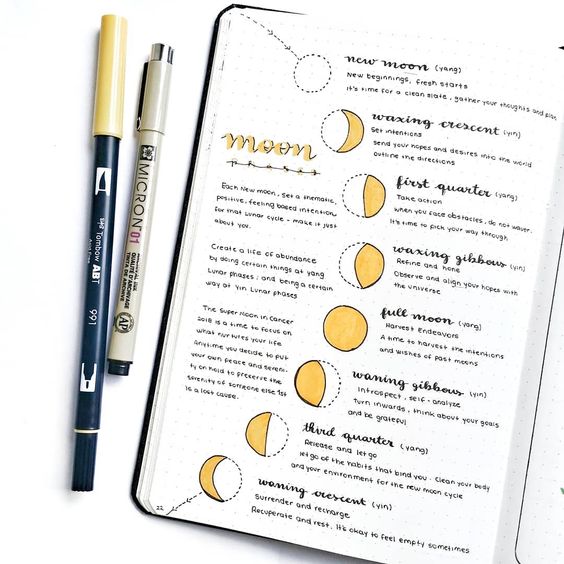 new moon (yang)
New beginnings, fresh starts
it's time for a clean slate, gather your thoughts and plan
waxing crescent (yin)
Set intentions
send your hopes and desires into the world
outline the directions
moon
phases
first quarter (yang)
Take action
when you face obstacles, do not waver.
It's time to pick your way through
Each New moon, set a thematic,
positive, feeling based intention
for that Lunar cycle - make it just
about you.
waxing gibbous (yin)
Refine and hone
Observe and align your hopes with
the universe
Create a life of abundance
by doing certain things at yang
Lunar phases; and being a certain
way at Yin Lunar phases
full moon (yang)
Harvest Endeavors
A time to harvest the intentions
and wishes of past moons
The super Moon in Cancer
2018 is a time to focus on
what nurtures your life.
Anytime you decide to put
your own peace and sereni-
ty on hold to preserve the
serenity of someone else 1st
is a lost cause.
waning gibbous (yin)
Introspect, self-analyze
Turn inwards, think about your goals
and be grateful
third quarter (yang)
Release and let go
let go of the habits that bind you. Clean your body
and your environment for the new moon cycle
waning crescent (yin)
Surrender and recharge
Recuperate and rest. It's okay to feel empty sometimes
22
Tombow ABT
991
MICRON 01
ARCHIVAL INK
QUALITÉ D'ARCHIVAGE
TINTA DE ARCHIVO
AP